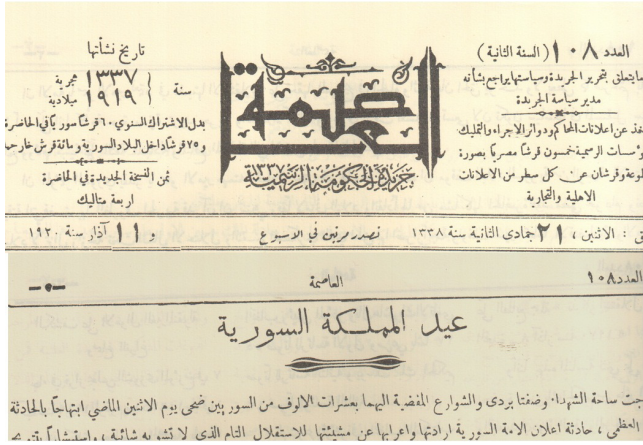 العدد ١٠٨ (السنة الثانية)
مايتعلق بتحرير الجريدة وسياستها يراجع بشأنه
مدير سياسة الجريدة
خذ عن اعلانات المحاكم ودوائر الاجراء والتمليك
ؤسسات الرسمية خمسون قرشا مصريا بصورة
وعة وقرشان عن كل سطر من الاعلانات
الاهلية والتجارية
العاصمة
جريدة الحكومة الرسمية ١٣٣٧
تاريخ نشأتها
سنة { ١٣٣٧ هجرية
١٩١٩ ميلادية }
بدل الاشتراك السنوي ٦٠ قرشا سوريا في الحاضرة
و ٧٥ قرشا داخل البلاد السورية ومائة قرش خارجها
ثمن النسخة الجديدة في الحاضرة
اربعة متاليك
ق : الاثنين ، ٢١ جمادى الثانية سنة ١٣٣٨ تصدر مرتين في الاسبوع و ١١ آذار سنة ١٩٢٠
العدد ١٠٨ العاصمة
عيد المملكة السورية
جت ساحة الشهداء وضفتا بردى والشوارع المفضية اليهما بعشرات الالوف من السوريين ضحى يوم الاثنين الماضي ابتهاجا بالحادثة
العظمى ، حادثة اعلان الامة السورية ارادتها واعرابها عن مشيئتها للاستقلال التام الذي لا تشوبه شائبة ، واستبشارا بتتويج